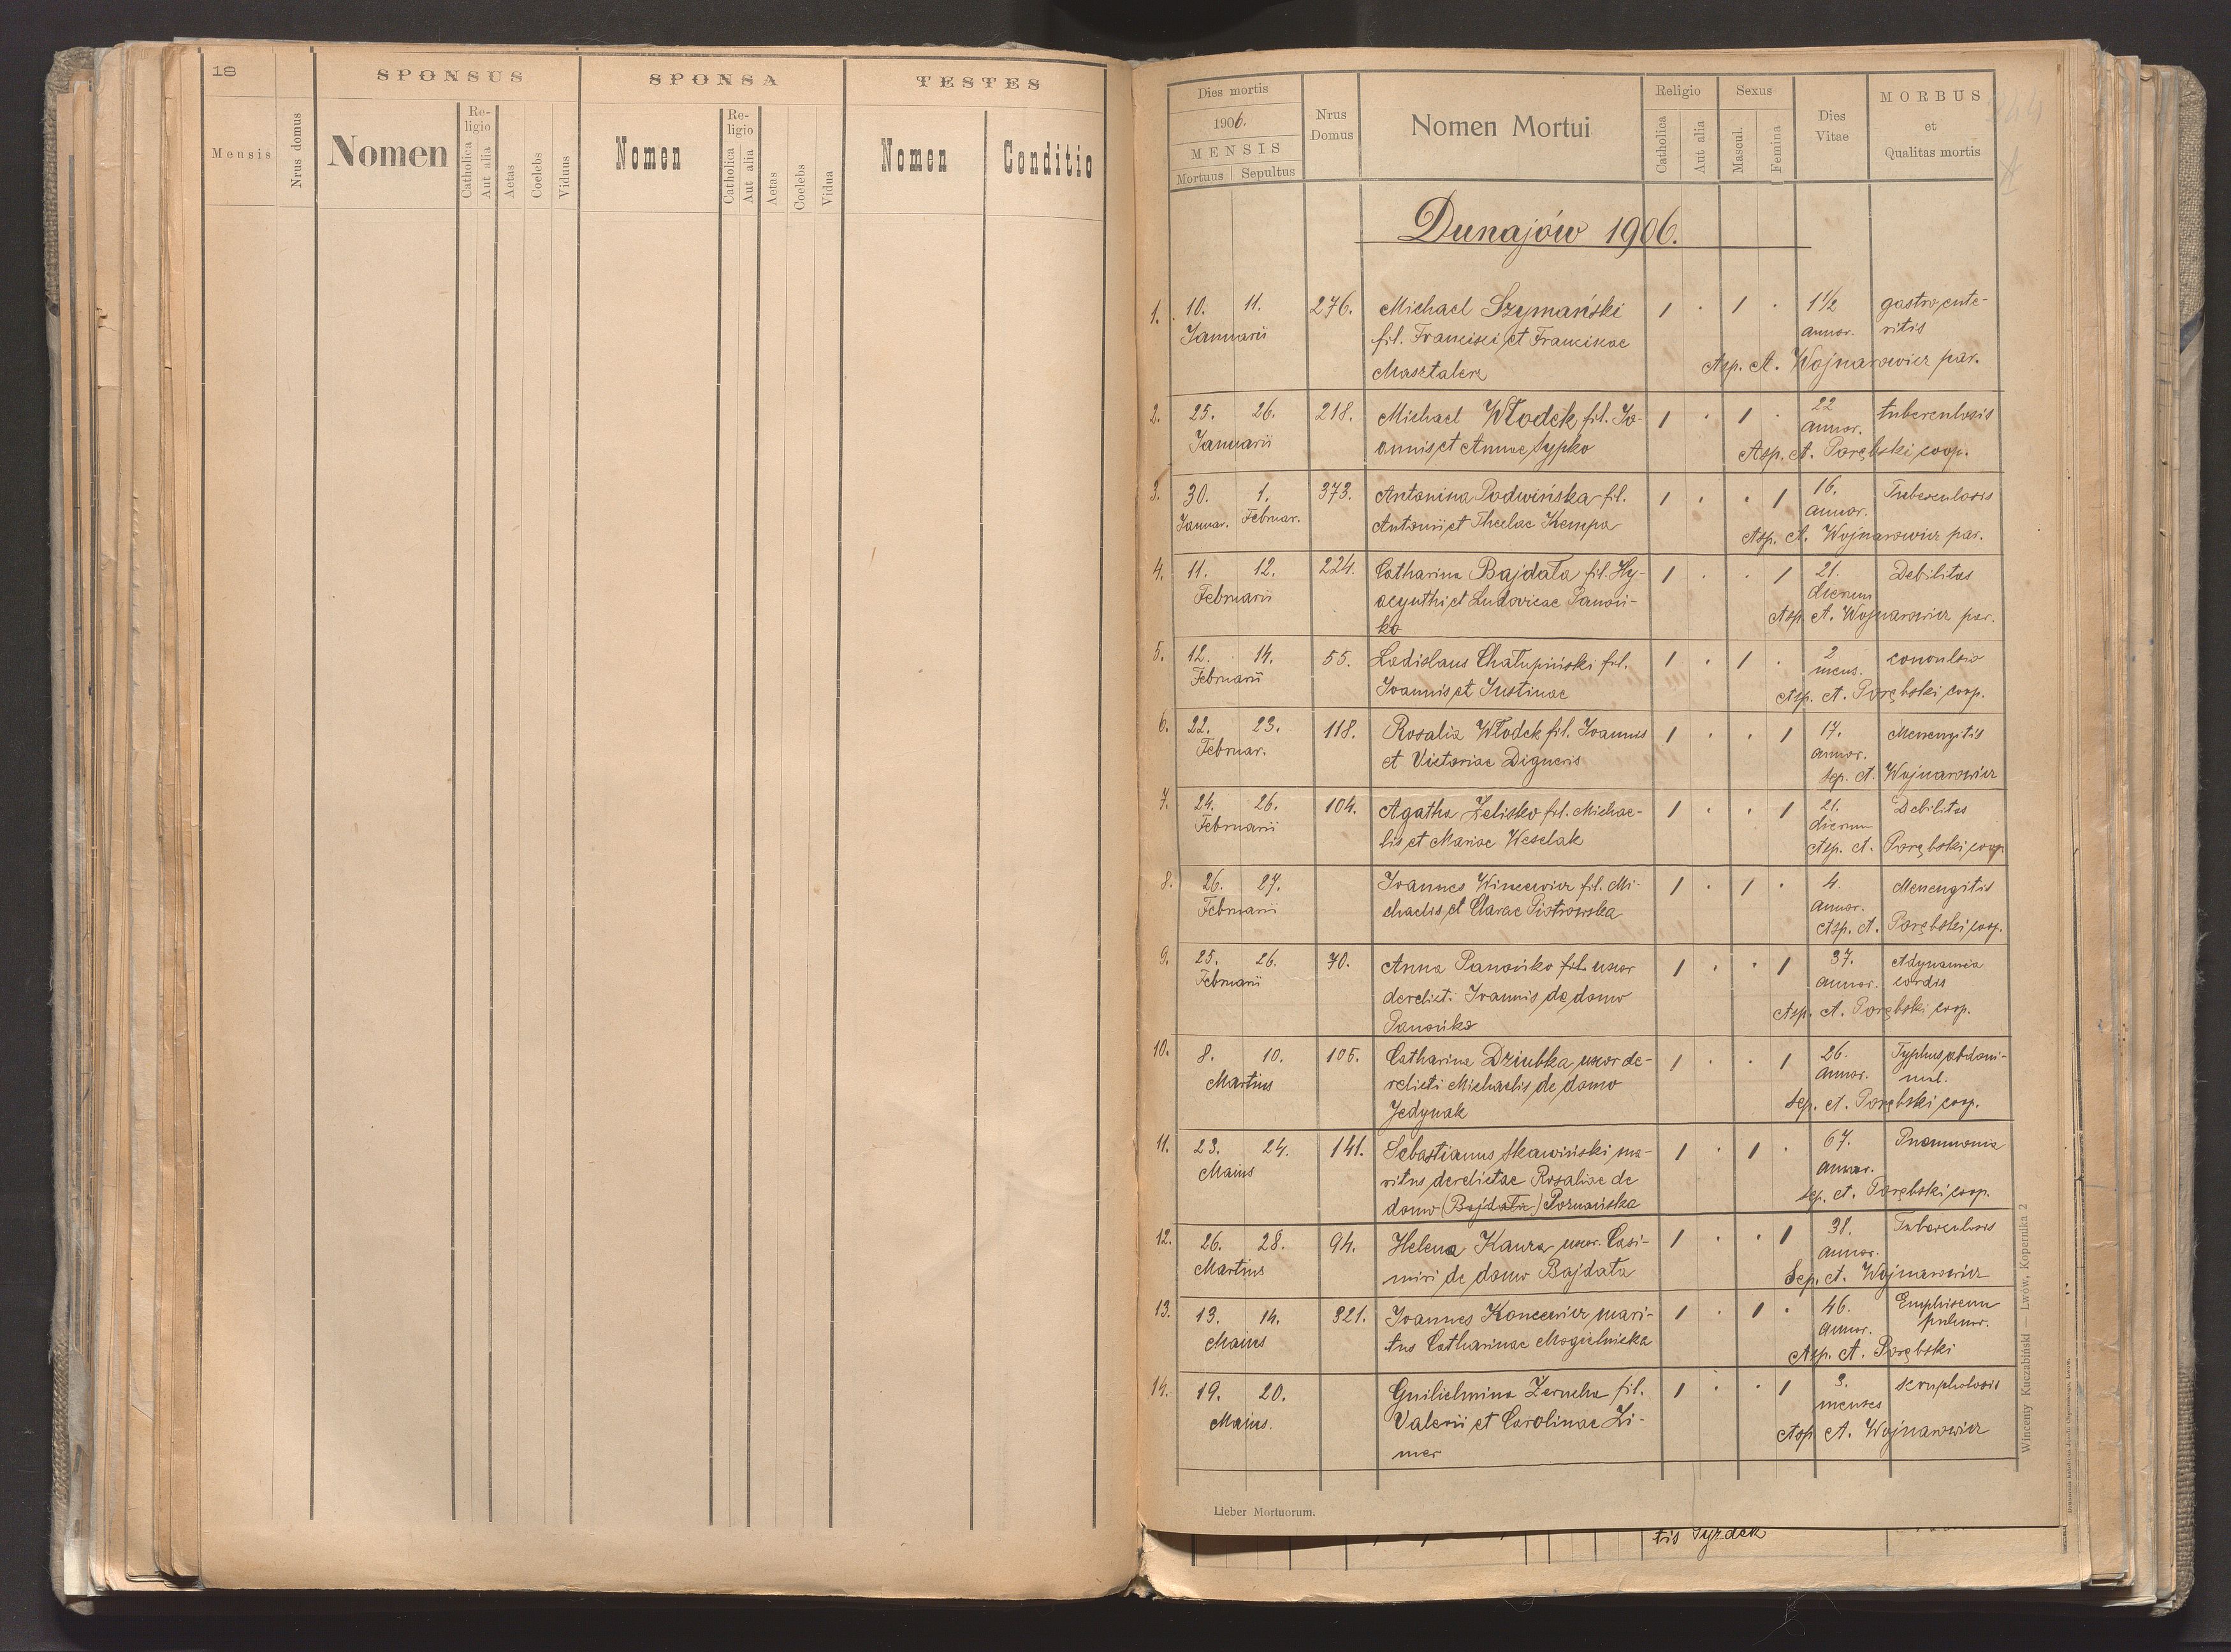 18
SPONSUS
SPONSA
TESTES
Mensis
Nrus domus
Nomen
Re-
ligio
Catholica
Aut alia
Aetas
Coelebs
Viduus
Nomen
Re-
ligio
Catholica
Aut alia
Aetas
Coelebs
Vidua
Nomen
Conditio
Dies mortis
1906.
MENSIS
Mortuus Sepultus
Nrus
Domus
Nomen Mortui
Religio
Catholica
Aut alia
Sexus
Mascul.
Femina
Dies
Vitae
MORBUS
et
Qualitas mortis
Dunajów 1906.
1. 10. 11. 276. Michael Szymański 1 · 1 · 1½ gastroente-
Januarii fil. Francisci et Franciscae annor. ritis
Masztalerz Asp. A. Wojnarowicz par.
2. 25. 26. 218. Michael Włodek fil. Jo- 1 · 1 · 22 tuberculosis
Januarii annis et Annae Sypko annor.
Asp. A. Porębski coop.
3. 30. 1. 373. Antonina Podwińska fil. 1 · · 1 16. Tuberculosis
Januar. Februar. Antonii et Theclae Kempa annor.
Asp. A. Wojnarowicz par.
4. 11. 12. 224. Catharina Bajdała fil. Hy- 1 · · 1 21. Debilitas
Februarii acynthi et Ludovicae Panoń- dierum
ko Asp. A. Wojnarowicz par.
5. 12. 14. 55. Ladislaus Chałupiński fil. 1 · 1 · 2 convulsio
Februarii Joannis et Justinae mens.
Asp. A. Porębski coop.
6. 22. 23. 118. Rosalia Włodek fil. Joannis 1 · · 1 17. Menengitis
Februar. et Victoriae Digneris annor.
Sep. A. Wojnarowicz
7. 24. 26. 104. Agatha Zelisko fil. Michae- 1 · · 1 21. Debilitas
Februarii lis et Mariae Weselak dierum
Asp. A. Porębski coop.
8. 26. 27. Joannes Wincewicz fil. Mi- 1 · 1 · 4. Menengitis
Februarii chaelis et Clarae Piotrowska annor.
Asp. A. Porębski coop.
9. 25. 26. 70. Anna Panońko fil. uxor 1 · · 1 37. Adynamia
Februarii derelict. Joannis de domo annor. cordis
Panońko Asp. A. Porębski coop.
10. 8. 10. 105. Catharina Dziubka uxor de- 1 · · 1 26. Typhus abdomi-
Martius relicti Michaelis de domo annor. nal.
Jedynak Sep. A. Porębski coop.
11. 23. 24. 141. Sebastianus Skawiński ma- 1 · 1 · 67. Pneumonia
Maius ritus derelictae Rosaliae de annor.
domo (Bajdała) Poznańska Sep. A. Porębski coop.
12. 26. 28. 94. Helena Kanra uxor. Casi- 1 · · 1 38. Tuberculosis
Martius miri de domo Bajdała annor.
Sep. A. Wojnarowicz
13. 13. 14. 321. Joannes Koncewicz mari- 1 · 1 · 46. Emphisem
Maius tus Catharinae Mogielnicka annor. pulmor.
Asp. A. Porębski
14. 19. 20. Guilielmina Zerucha fil. 1 · · 1 3. skropholosis
Maius. Valerii et Carolinae Zi- menses
mer Asp. A. Wojnarowicz
Lieber Mortuorum.
Wincenty Kuczabiński — Lwów, Kopernika 2
tis Tyrdek